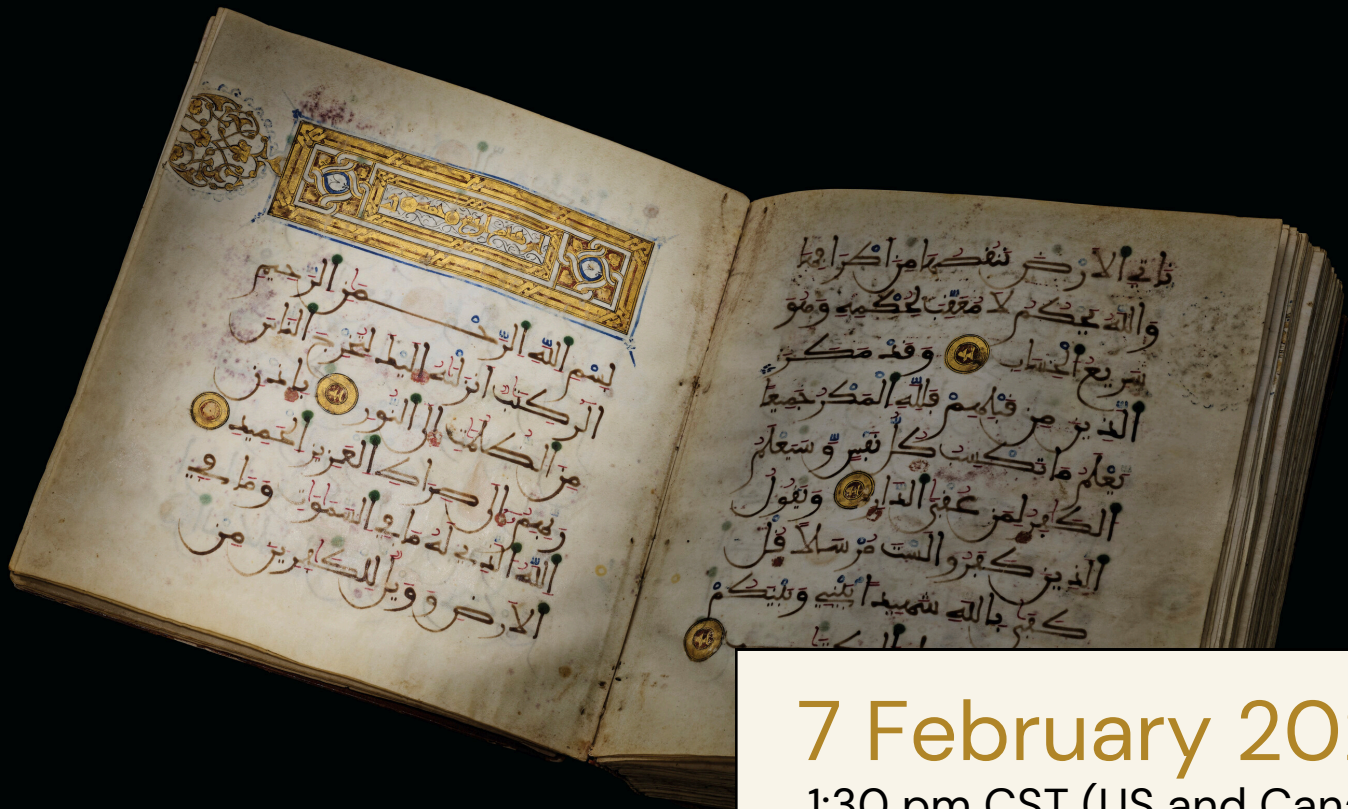 نَاتِي الَارْضَ نَنقُصُهَا مِنَ اَطْرَافِهَا
وَاللَّهُ يَحْكُمُ لَا مُعَقِّبَ لِحُكْمِهِ وَهُوَ
سَرِيعُ الْحِسَابِ وَقَدْ مَكَرَ
الَّذِينَ مِن قَبْلِهِمْ فَلِلَّهِ الْمَكْرُ جَمِيعًا
يَعْلَمُ مَا تَكْسِبُ كُلُّ نَفْسٍ وَسَيَعْلَمُ
الْكَافِرُ لِمَنْ عُقْبَى الدَّارِ وَيَقُولُ
الَّذِينَ كَفَرُوا لَسْتَ مُرْسَلًا قُلْ
كَفَى بِاللَّهِ شَهِيدًا بَيْنِي وَبَيْنَكُمْ
بِسْمِ اللَّهِ الرَّحْمَنِ الرَّحِيمِ
الر كِتَبٌ اَنزَلْنَهُ إِلَيْكَ لِتُخْرِجَ النَّاسَ
مِنَ الظُّلُمَتِ إِلَى النُّورِ بِإِذْنِ
رَبِّهِمُ إِلَى صِرَاطِ الْعَزِيزِ الْحَمِيدِ
اللَّهُ الَّذِي لَهُ مَا فِي السَّمَوَتِ وَمَا فِي
الَارْضِ وَوَيْلٌ لِلْكَافِرِينَ مِنْ
7 February 20
1:30 pm CST (US and Can